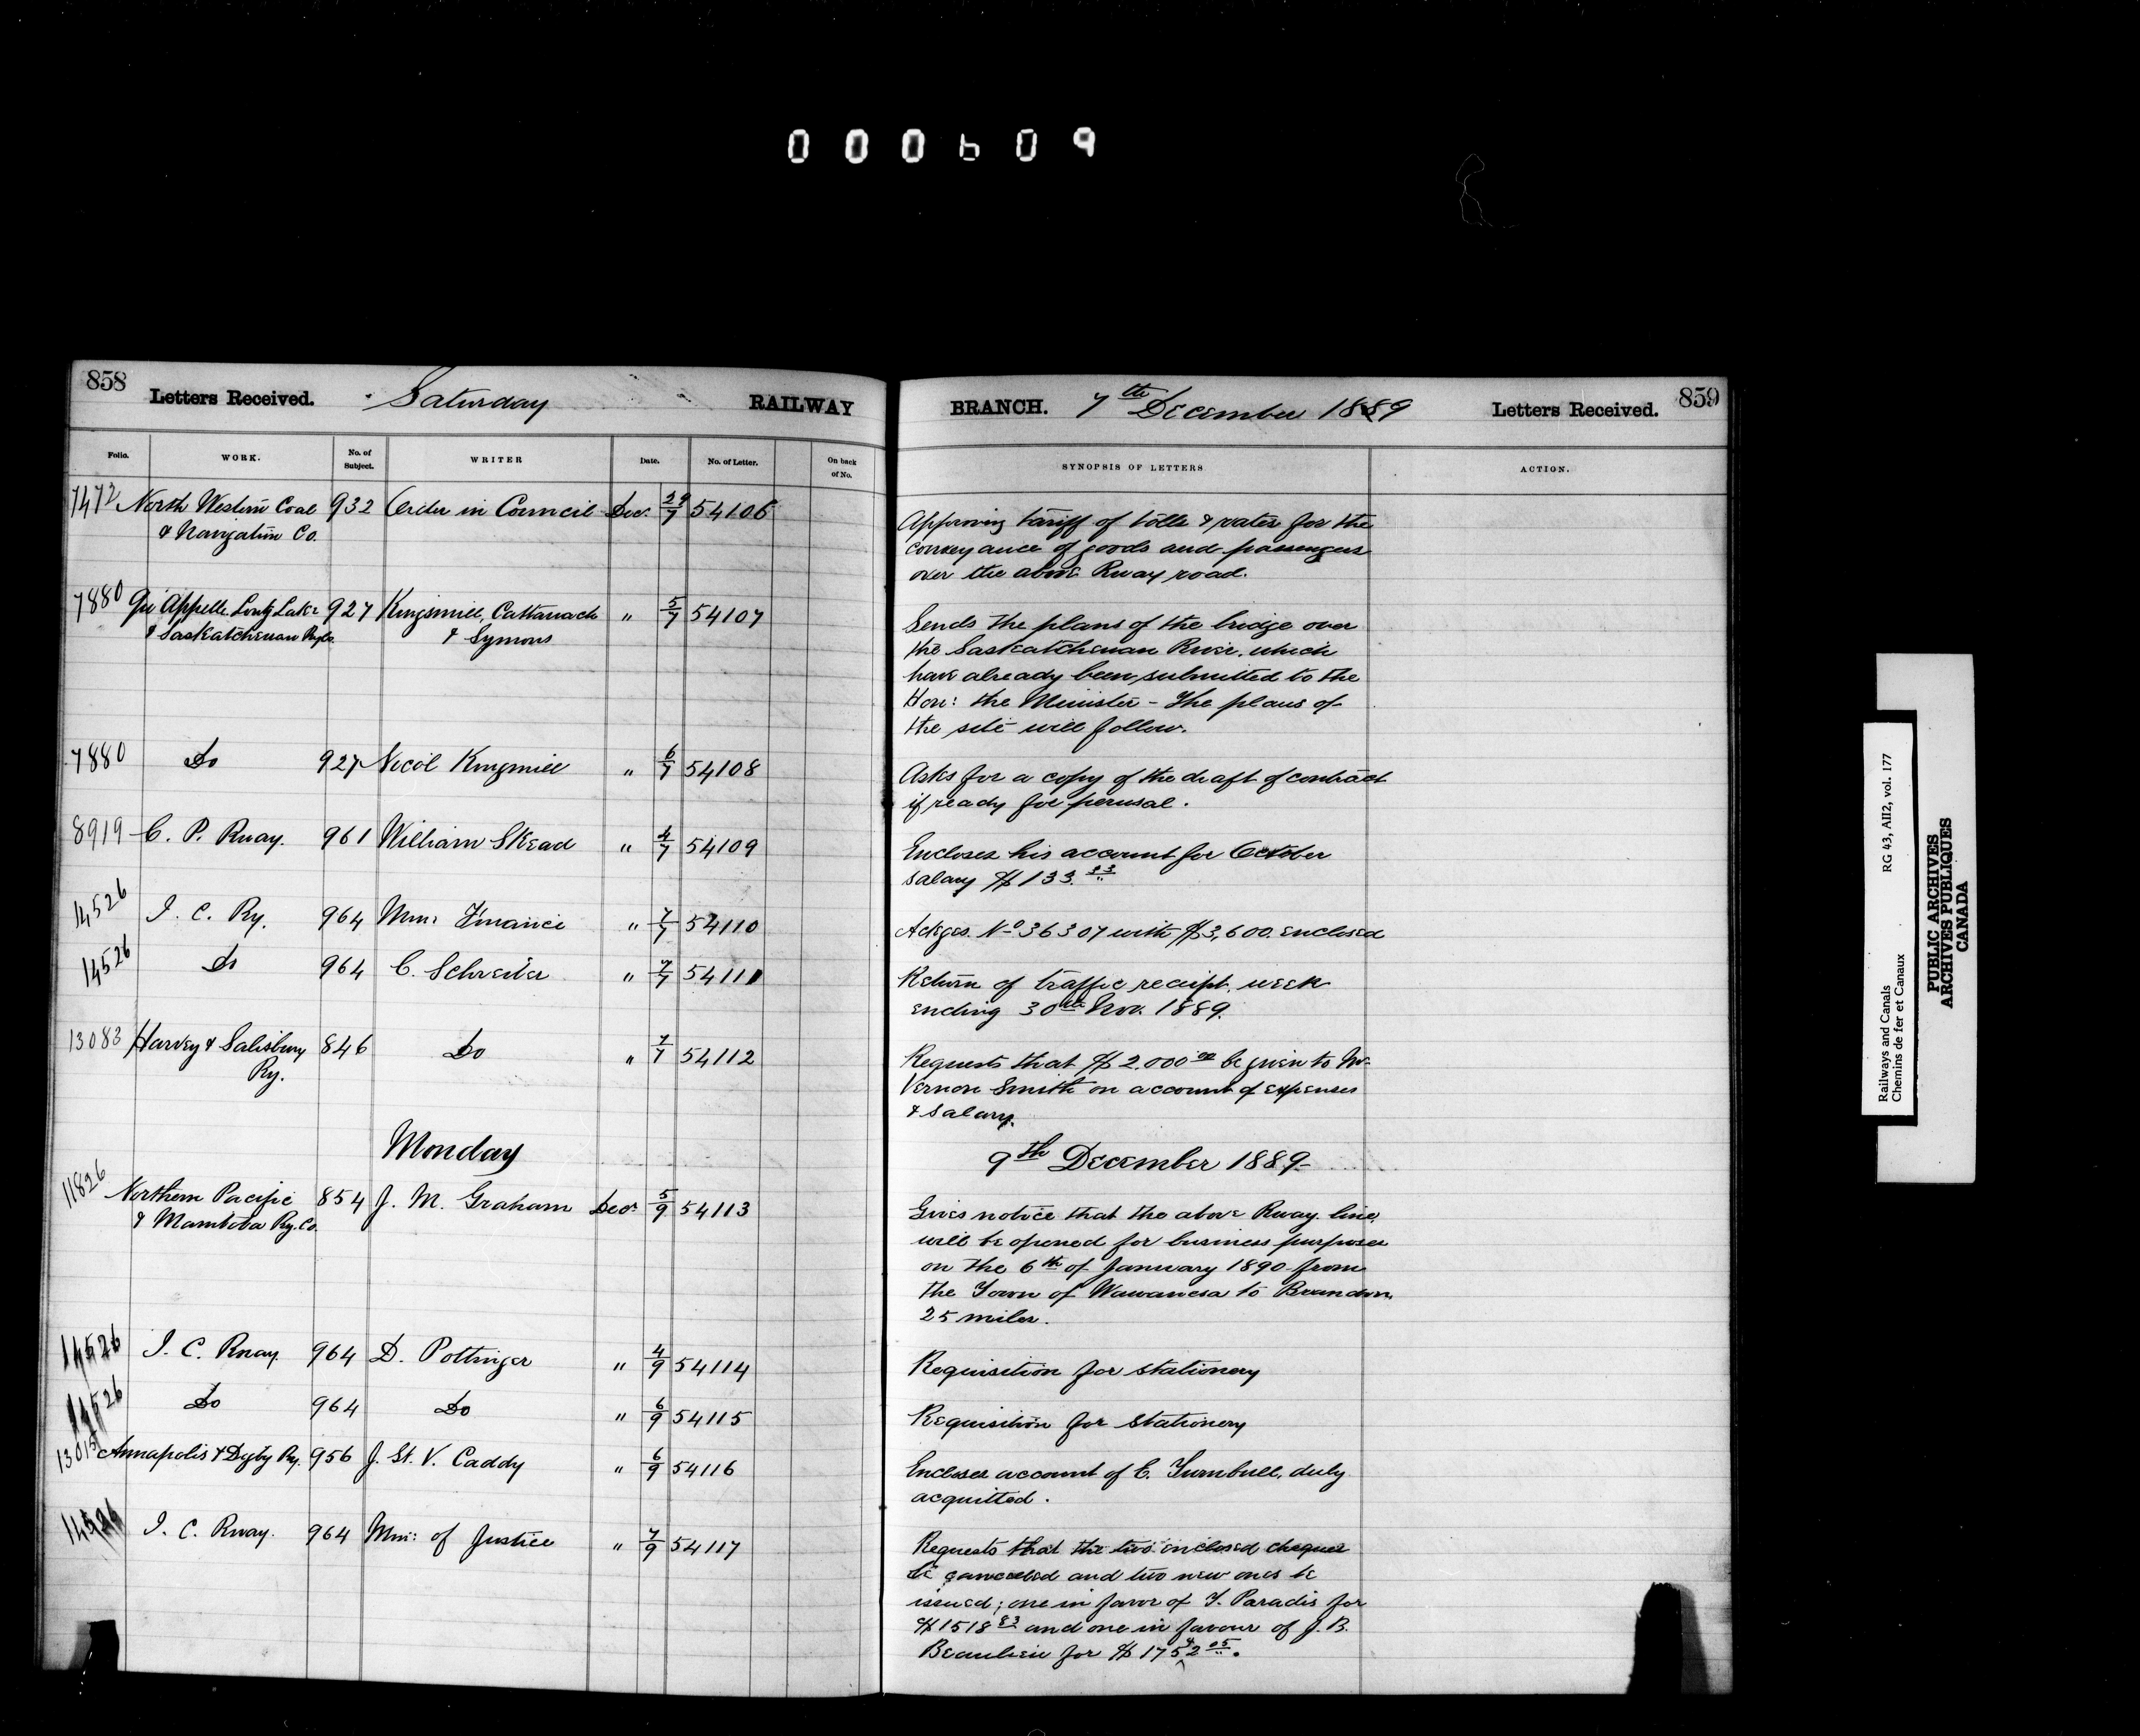 000609
858
Letters Received. Saturday RAILWAY
Folio. WORK. No. of Subject. WRITER Date. No. of Letter. On back of No.
7472 North Western Coal 932 Order in Council Dec. 29/7 54106
& Navigation Co.
7880 Qu'Appelle Long Lake 927 Kingsmill, Cattanach " 5/7 54107
& Saskatchewan Ry Co. & Symons
7880 Do 927 Nicol Kingsmill " 6/7 54108
8919 C. P. Rway. 961 William Skead " 4/7 54109
14526 I. C. Ry. 964 Min: Finance " 7/7 54110
14526 Do 964 C. Schreiber " 7/7 54111
13083 Harvey & Salisbury 846 Do " 7/7 54112
Ry.
Monday
11826 Northern Pacific 854 J. M. Graham Dec. 5/9 54113
& Manitoba Ry. Co.
14526 I. C. Rway. 964 D. Pottinger " 4/9 54114
14526 Do 964 Do " 6/9 54115
13015 Annapolis & Digby Ry. 956 J. St. V. Caddy " 6/9 54116
14526 I. C. Rway. 964 Min: of Justice " 7/9 54117
BRANCH. 7th December 1889 Letters Received. 859
SYNOPSIS OF LETTERS ACTION.
Approving tariff of tolls & rates for the
conveyance of goods and passengers
over the above Rway road.
Sends the plans of the bridge over
the Saskatchewan River, which
have already been submitted to the
Hon: the Minister - The plans of
the site will follow.
Asks for a copy of the draft of contract
if ready for perusal.
Encloses his account for October
salary $133.33
Ackges. No 36307 with $3,600. enclosed
Return of traffic receipt, week
ending 30th Nov. 1889.
Requests that $2.000 00 be given to Mr
Vernon Smith on account of expenses
& salary.
9th December 1889-
Gives notice that the above Rway. line,
will be opened for business purposes
on the 6th of January 1890 from
the Town of Wawanesa to Brandon,
25 miles.
Requisition for stationery
Requisition for stationery
Encloses account of C. Turnbull, duly
acquitted.
Requests that the two enclosed cheques
be cancelled and two new ones be
issued; one in favor of T. Paradis for
$1518 83 and one in favour of J. B.
Beaulieu for $1752 05.
Railways and Canals RG 43, AII2, vol. 177
Chemins de fer et Canaux
PUBLIC ARCHIVES
ARCHIVES PUBLIQUES
CANADA